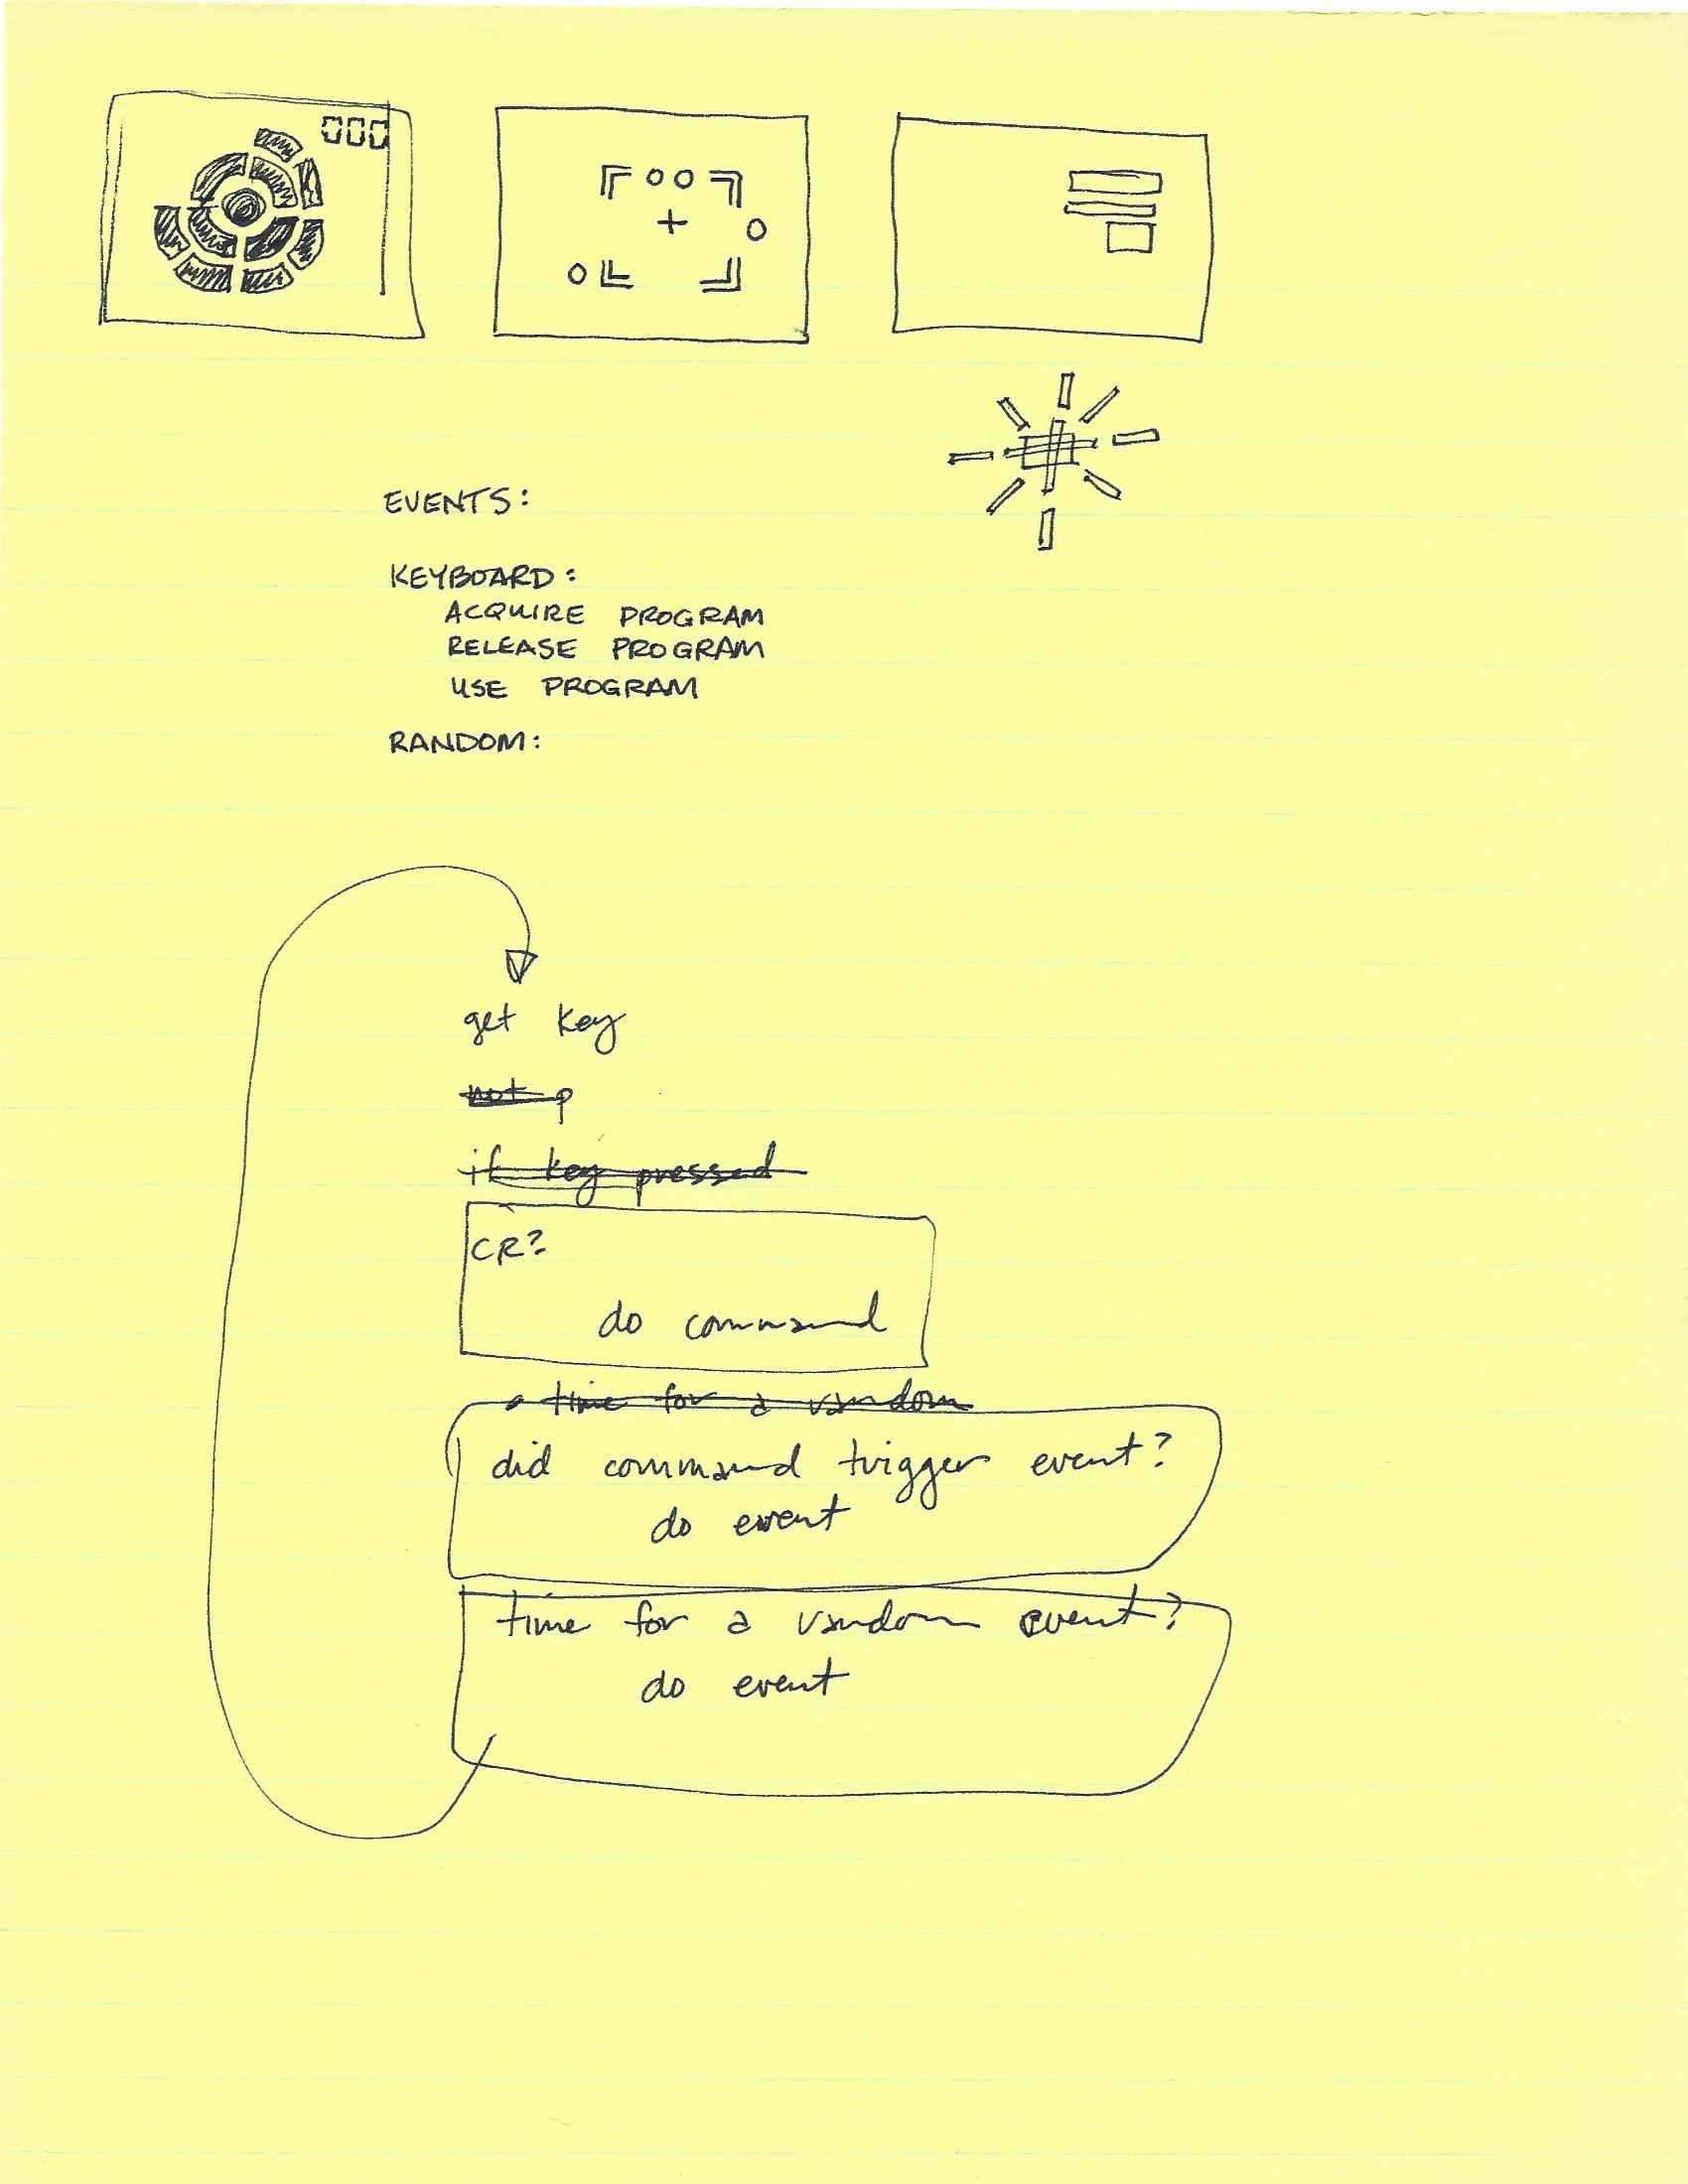 000
EVENTS:
KEYBOARD:
ACQUIRE PROGRAM
RELEASE PROGRAM
USE PROGRAM
RANDOM:
get key
not p
if key pressed
CR?
do command
time for a random
did command trigger event?
do event
time for a random event?
do event